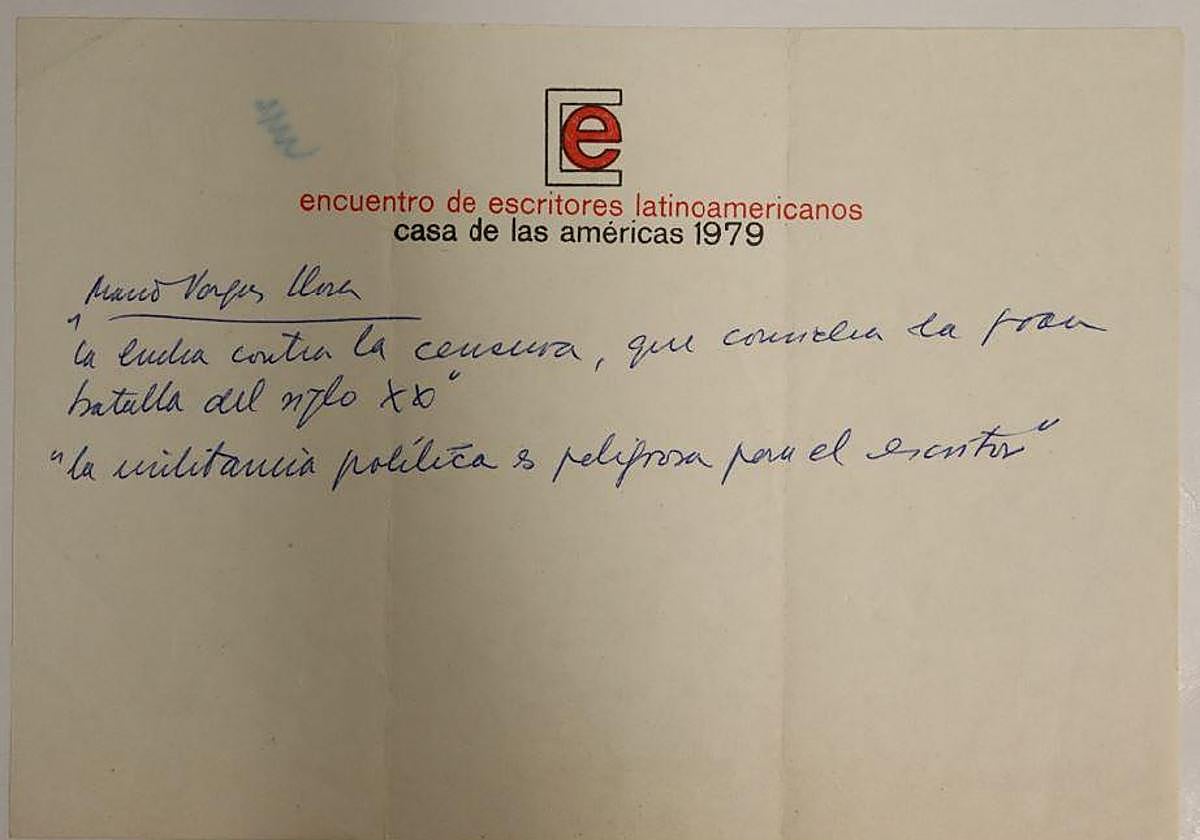 e
encuentro de escritores latinoamericanos
casa de las américas 1979
Mario Vargas Llosa
"la lucha contra la censura, que considera la gran
batalla del siglo XX"
"la militancia política es peligrosa para el escritor"